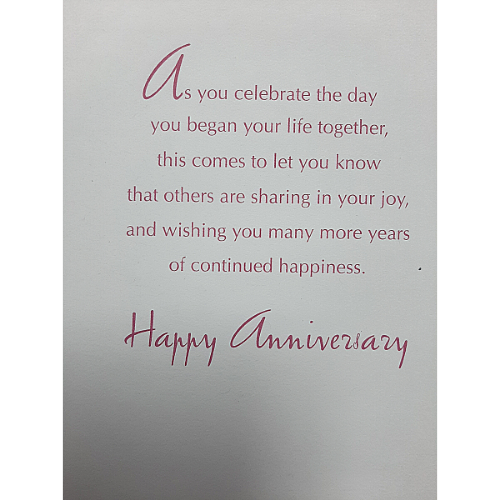 As you celebrate the day
you began your life together,
this comes to let you know
that others are sharing in your joy,
and wishing you many more years
of continued happiness.
Happy Anniversary